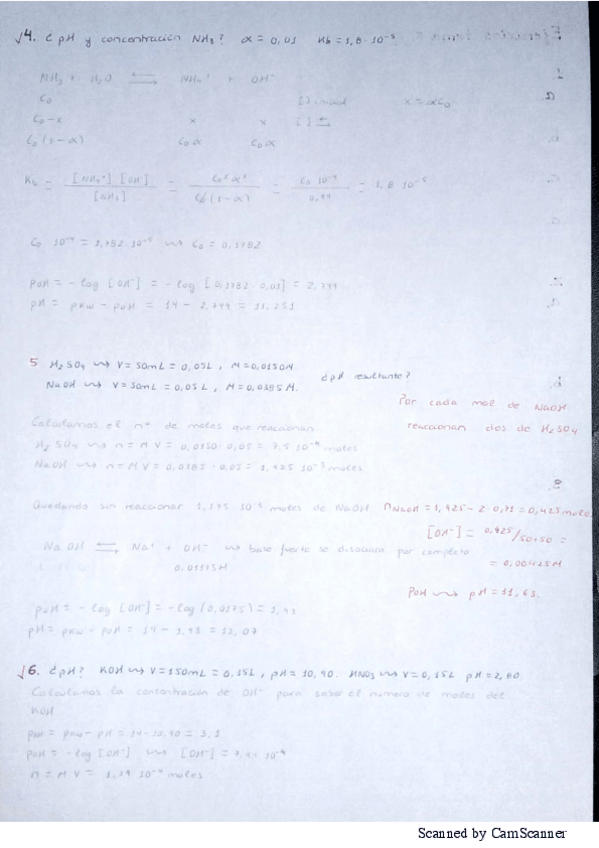 √4. ¿pH y concentración NH₃? α = 0,01 Kb = 1,8·10⁻⁵
NH₃ + H₂O ⇌ NH₄⁺ + OH⁻
C₀ [ ] inicial x = αC₀
C₀-x x x [ ] ⇌
C₀(1-α) C₀α C₀α
Kb = [NH₄⁺][OH⁻] / [NH₃] = C₀²α² / C₀(1-α) = C₀ 10⁻⁴ / 0,99 = 1,8 10⁻⁵
C₀ 10⁻⁴ = 1,782·10⁻⁵ ⇝ C₀ = 0,1782
pOH = -log [OH⁻] = -log [0,1782·0,01] = 2,749
pH = pKw - pOH = 14 - 2,749 = 11,251
5 H₂SO₄ ⇝ V = 50mL = 0,05L, M = 0,0150M
NaOH ⇝ V = 50mL = 0,05L, M = 0,0385M. ¿pH resultante?
Por cada mol de NaOH
reaccionan dos de H₂SO₄
Calculamos el nº de moles que reaccionan
H₂SO₄ ⇝ n = M V = 0,0150·0,05 = 7,5 10⁻⁴ moles
NaOH ⇝ n = M V = 0,0385·0,05 = 1,925 10⁻³ moles
Quedando sin reaccionar 1,175 10⁻³ moles de NaOH
n NaOH = 1,925 - 2·0,75 = 0,425 moles
[OH⁻] = 0,425/50+50 =
= 0,00425M
NaOH ⇌ Na⁺ + OH⁻ ⇝ base fuerte se disociará por completo
0,01175M
POH ⇝ pH = 11,63.
pOH = -log [OH⁻] = -log (0,01175) = 1,93
pH = pKw - pOH = 14 - 1,93 = 12,07
√6. ¿pH? KOH ⇝ V = 150mL = 0,15L, pH = 10,90. HNO₃ ⇝ V = 0,15L pH = 2,80
Calculamos la concentración de OH⁻ para saber el número de moles del
KOH
pOH = pKw - pH = 14 - 10,90 = 3,1
pOH = -log [OH⁻] ⇝ [OH⁻] = 7,94 10⁻⁴
n = M V = 1,19 10⁻⁴ moles
Scanned by CamScanner